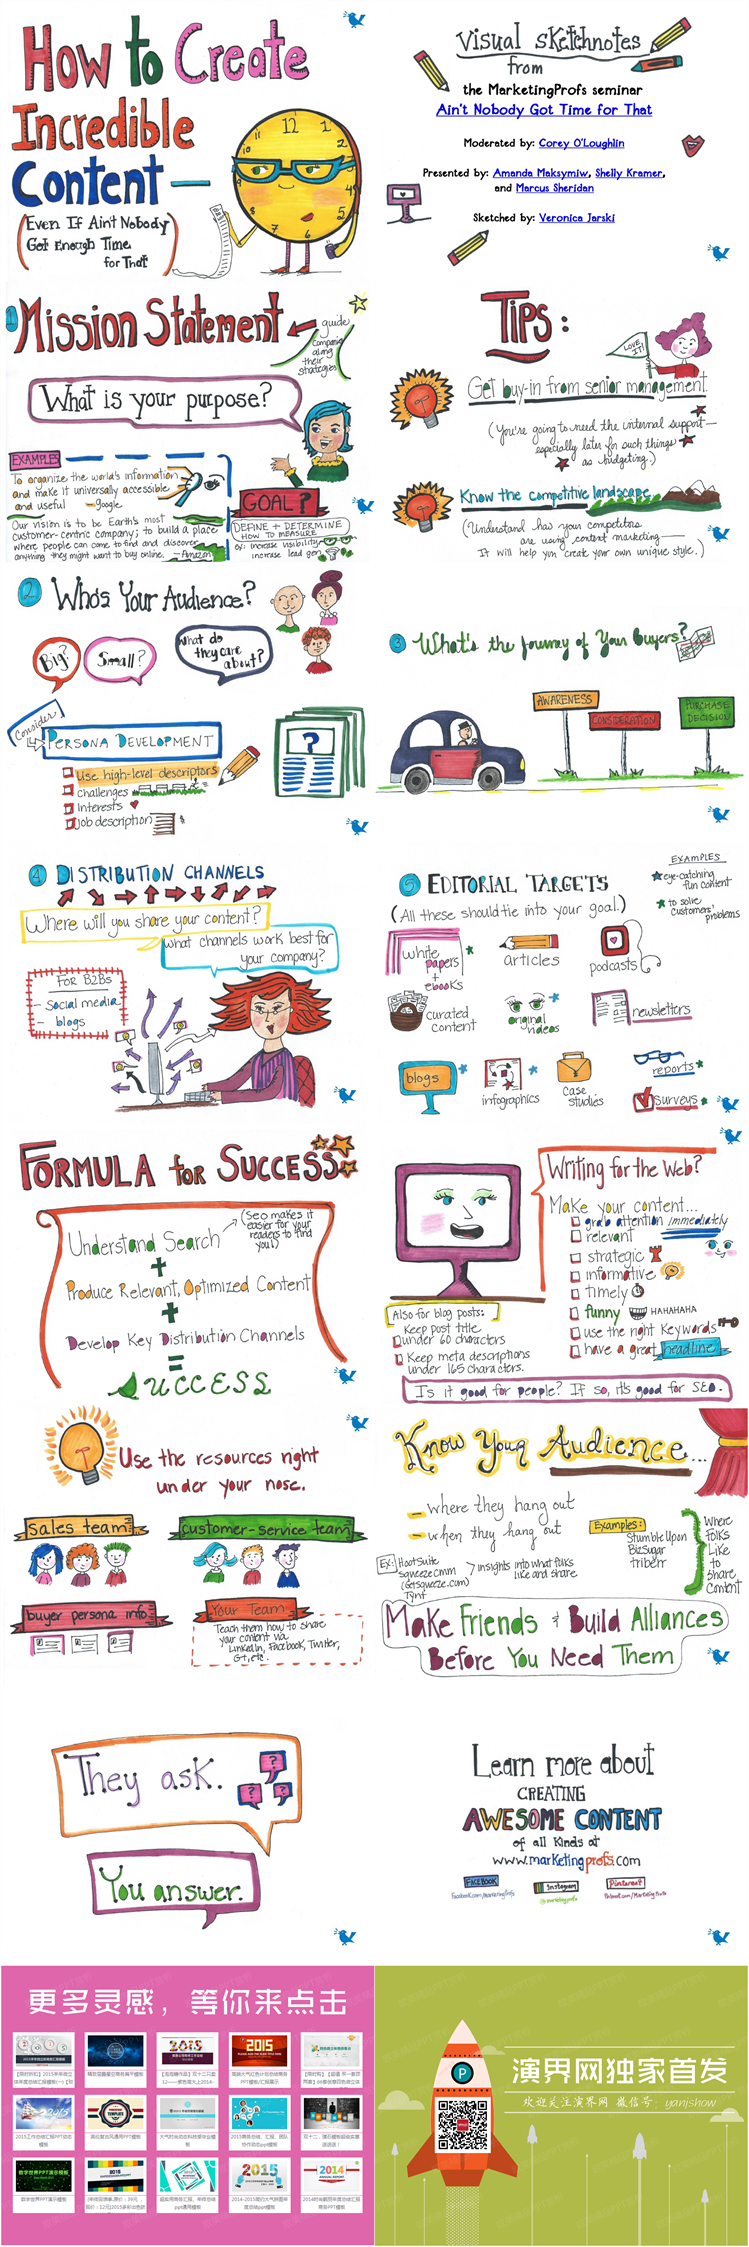 How to Create
Incredible
Content—
(Even If Ain't Nobody
Got Enough Time
for That)
Visual Sketchnotes
from
the MarketingProfs seminar
Ain't Nobody Got Time for That
Moderated by: Corey O'Loughlin
Presented by: Amanda Maksymiw, Shelly Kramer,
and Marcus Sheridan
Sketched by: Veronica Jarski
1 Mission Statement
guide
companies
along
their
strategies
What is your purpose?
EXAMPLES
To organize the world's information
and make it universally accessible
and useful —google
Our vision is to be Earth's most
customer-centric company; to build a place
where people can come to find and discover
anything they might want to buy online. —Amazon
GOAL?
DEFINE + DETERMINE
HOW TO MEASURE
increase visibility
increase lead gen
Tips:
LOVE IT!
Get buy-in from senior management.
(You're going to need the internal support—
especially later for such things
as budgeting.)
Know the competitive landscape
(Understand how your competitors
are using content marketing—
It will help you create your own unique style.)
2 Who's Your Audience?
Big?
Small?
What do
they care
about?
Consider
PERSONA DEVELOPMENT
Use high-level descriptors
challenges
Interests
job description
?
3 What's the Journey of Your Buyers?
AWARENESS
CONSIDERATION
PURCHASE
DECISION
4 DISTRIBUTION CHANNELS
Where will you share your content?
What channels work best for
your company?
FOR B2Bs
- Social media
- blogs
5 EDITORIAL TARGETS
(All these should tie into your goal.)
EXAMPLES
eye-catching
fun content
to solve
customers'
problems
white
papers
+
ebooks
articles
podcasts
curated
content
original
videos
newsletters
blogs
infographics
case
studies
reports
surveys
FORMULA for SUCCESS
Understand Search
(Seo makes it
easier for your
readers to find
you!)
+
Produce Relevant, Optimized Content
+
Develop Key Distribution Channels
=
SUCCESS
Writing for the Web?
Make your content...
grab attention immediately
relevant
strategic
informative
timely
funny HAHAHAHA
use the right keywords
have a great headline
Also for blog posts:
Keep post title
under 60 characters
Keep meta descriptions
under 165 characters.
Is it good for people? If so, it's good for SEO.
Use the resources right
under your nose.
sales team
customer-service team
buyer persona info
Your Team
Teach them how to share
your content via
LinkedIn, Facebook, Twitter,
G+, etc.
Know Your Audience...
- where they hang out
- when they hang out
EX: HootSuite
sqweezecmm
(Getsqweeze.com)
Tynt
insights into what folks
like and share
Examples:
Stumble Upon
Bizsugar
triberr
Where
Folks
Like
to
Share
Content
Make Friends & Build Alliances
Before You Need Them
They ask.
? ? ?
You answer.
Learn more about
CREATING
AWESOME CONTENT
of all kinds at
www.marketingprofs.com
FACEBOOK
Facebook.com/marketingprofs
Instagram
@marketingprofs
Pinterest
更多灵感，等你来点击
2015
2015
2015
2014
P
演界网独家首发
欢迎关注演界网 微信号：yanjshow